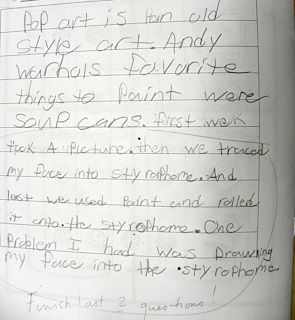 Pop art is fan old
style art. Andy
warhols favorite
things to Paint were
soup cans. first wek
took A Picture. then we traced
my face into styrophome. And
last we used Paint and rolled
it onto. the styrophome. One
Problem I had was Drawning
my face into the styrophome
Finish last 2 questions!